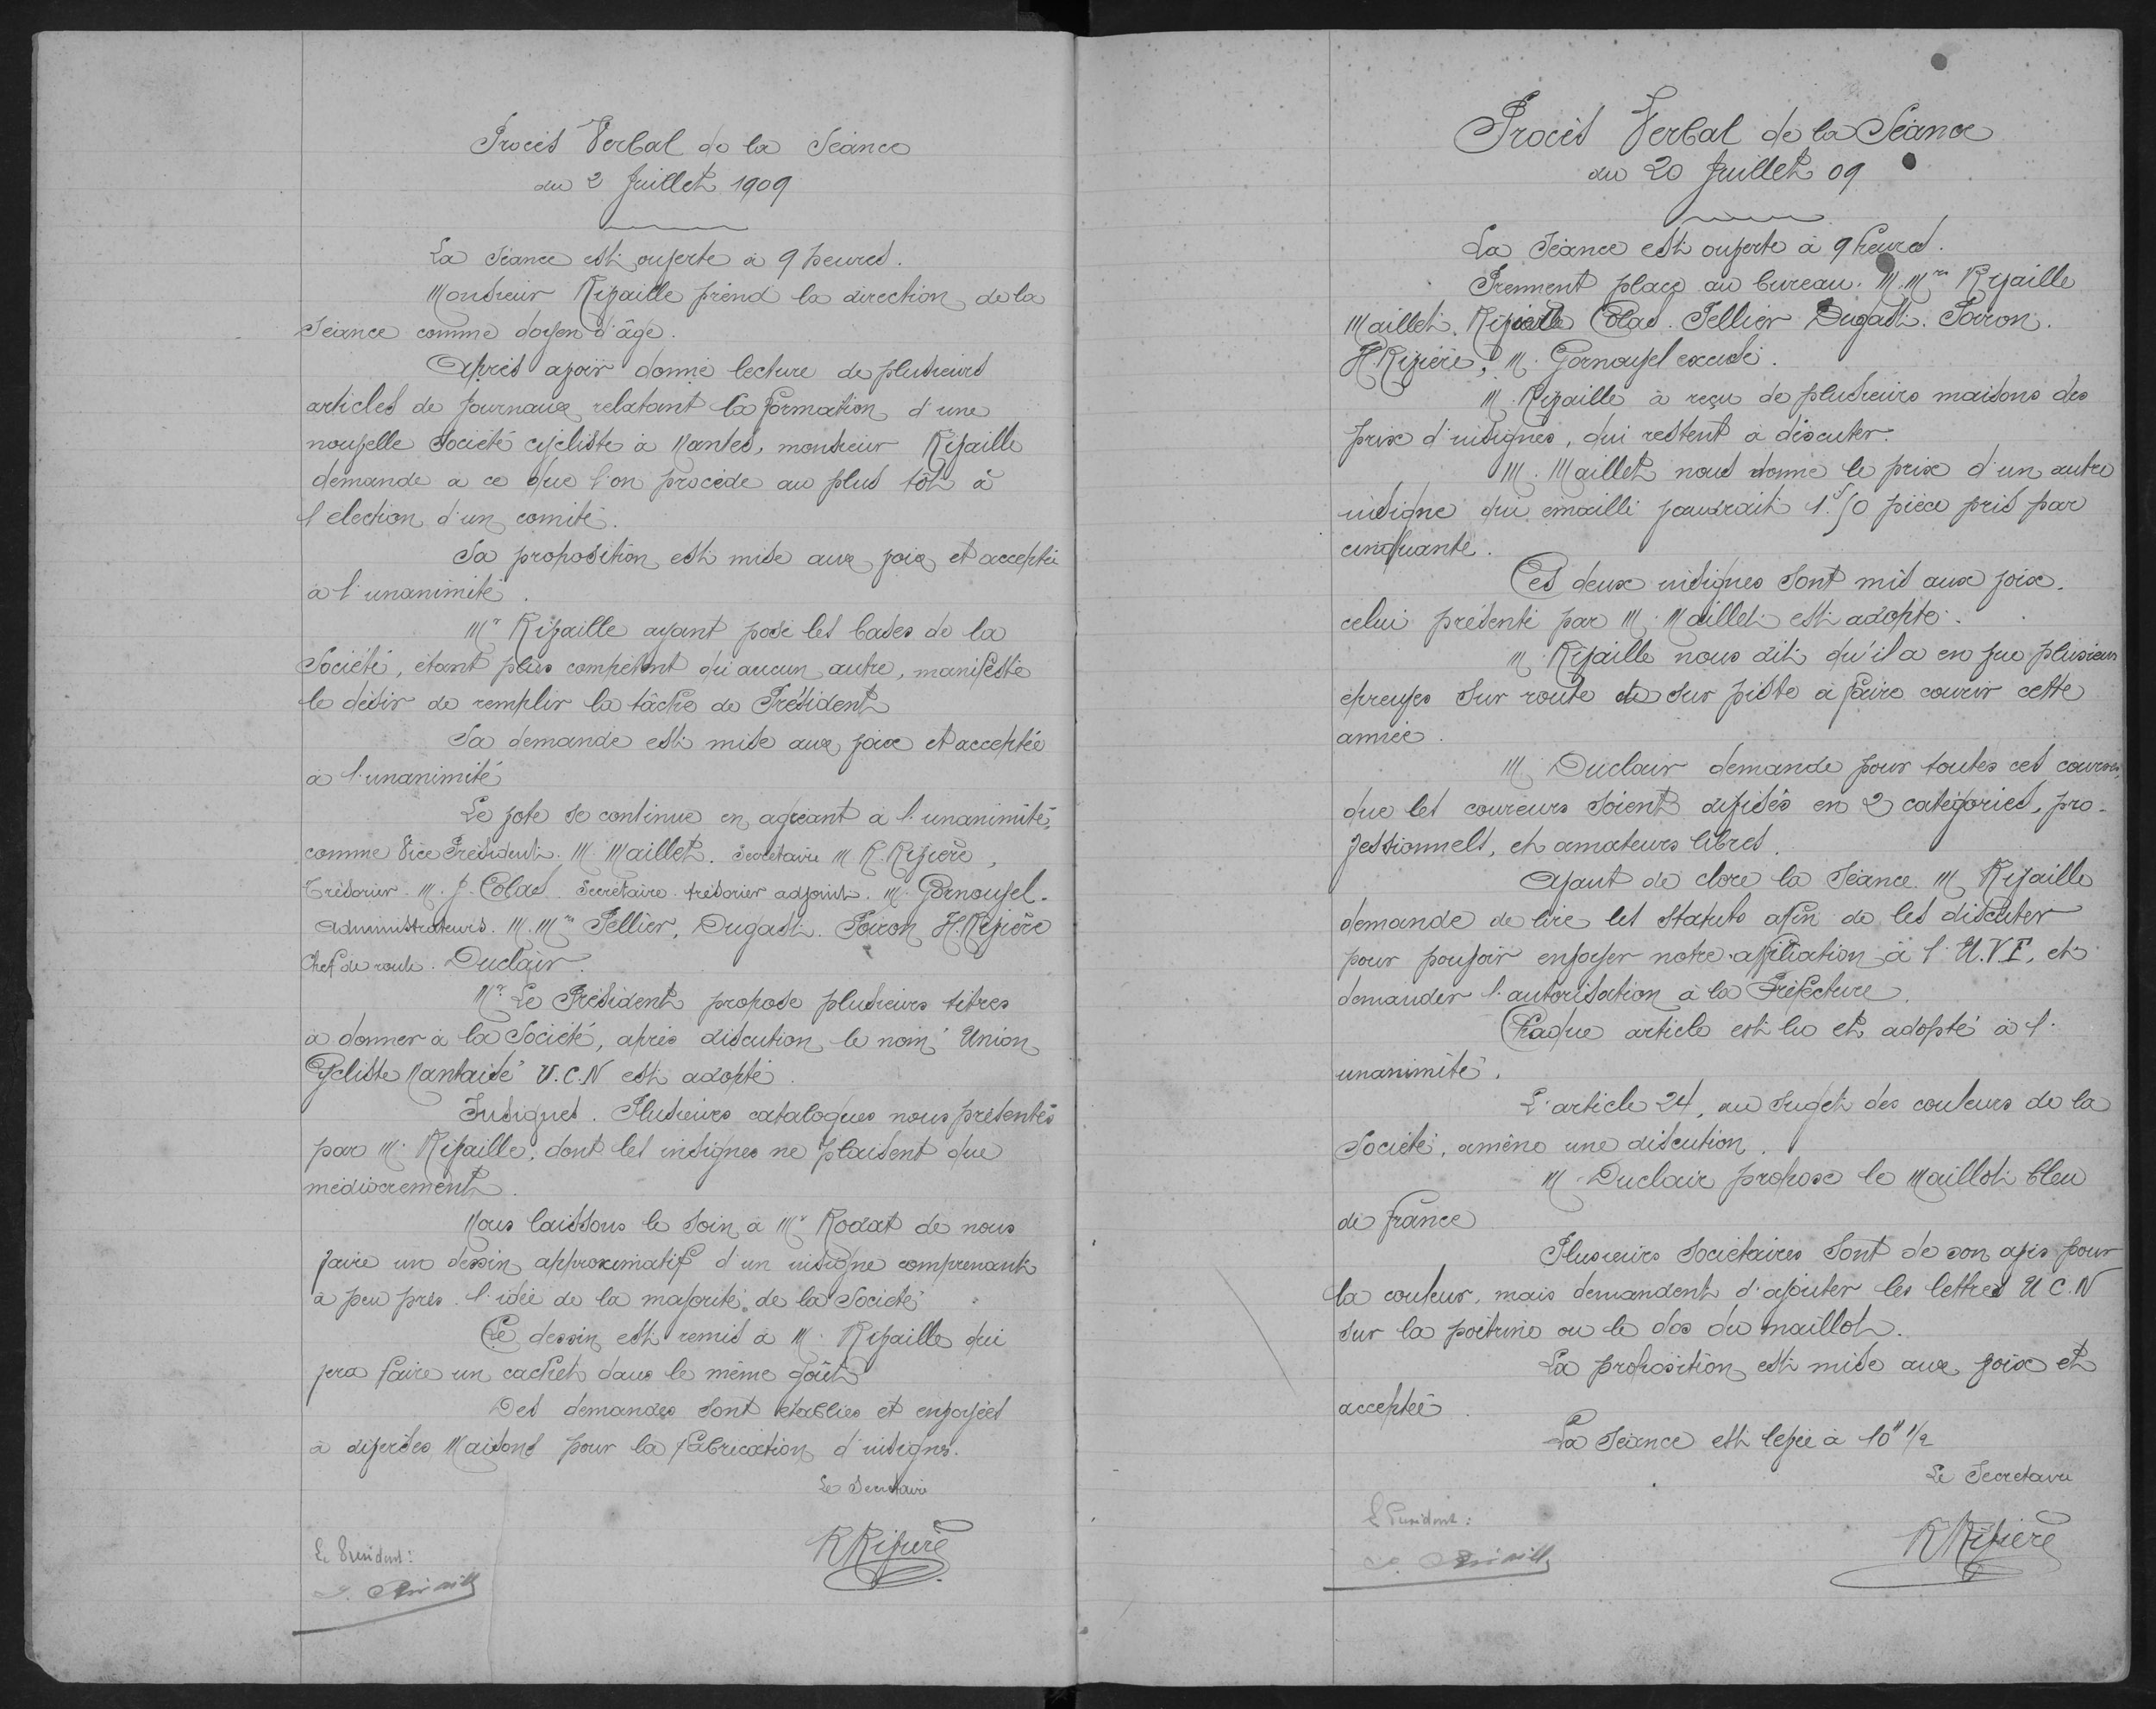 Procès Verbal de la Séance
du 2 Juillet 1909
La Séance est ouverte à 9 heures.
Monsieur Rivaille prend la direction de la
Séance comme doyen d'âge.
Après avoir donné lecture de plusieurs
articles de journaux relatant la formation d'une
nouvelle Société cycliste à Nantes, monsieur Rivaille
demande a ce que l'on procède au plus tôt à
l'election d'un comité.
Sa proposition est mise aux voix et acceptée
à l'unanimité.
Mr Rivaille ayant posé les bases de la
Société, étant plus compétent qu'aucun autre, manifeste
le désir de remplir la tâche de Président
Sa demande est mise aux voix et acceptée
à l'unanimité
Le vote se continue en agréant à l'unanimité,
comme Vice Président. M. Maillet. Secrétaire M R. Rivière,
Trésorier. M. J. Colas. Secrétaire trésorier adjoint. M. Gornouvel.
Administrateurs. M. Mrs Tellier, Dugast. Poiron H. Rivière
Chef de route. Duclair.
Mr Le Président propose plusieurs titres
à donner à la Société, après discution le nom "Union
Cycliste Nantaise" U.C.N est adopté.
Insignes. Plusieurs catalogues nous présentés
par M. Rivaille, dont les insignes ne plaisent que
médiocrement.
Nous laissons le soin à Mr Rodat de nous
faire un dessin approximatif d'un insigne comprenant
à peu près l'idée de la majorité de la Société
Ce dessin est remis à M. Rivaille qui
fera faire un cachet dans le même goût
Des demandes sont établies et envoyées
à diverses Maisons pour la fabrication d'insignes.
Le Secrétaire
R Rivière
Le Président:
Rivaille
Procès Verbal de la Séance
du 20 Juillet 09
La Séance est ouverte à 9 heures.
Prennent place au bureau. M. Mrs Rivaille
Maillet. Colas. Tellier Dugast. Poiron.
H. Rivière, M. Gornouvel excusé.
M. Rivaille à reçu de plusieurs maisons des
prix d'insignes, qui restent à discuter.
M. Maillet nous donne le prix d'un autre
insigne qui émaillé vaudrait 1.f50 pièce pris par
cinquante.
Ces deux insignes sont mis aux voix.
celui présenté par M. Maillet est adopté.
M Rivaille nous dit qu'il a en vue plusieurs
épreuves sur route et sur piste à faire courir cette
année.
M. Duclair demande pour toutes ces courses,
que les coureurs soient divisés en 2 catégories, pro-
fessionnels, et amateurs libres.
Avant de clore la Séance. M. Rivaille
demande de lire les Statuts afin de les discuter
pour pouvoir envoyer notre affiliation à l'U.V.F, et
demander l'autorisation à la Préfecture.
Chaque article est lu et adopté à l'
unanimité.
L'article 24, au sujet des couleurs de la
Société, amène une discution.
M. Duclair propose le Maillot bleu
de France
Plusieurs Sociétaires sont de son avis pour
la couleur, mais demandent d'ajouter les lettres U C.N
sur la poitrine ou le dos du maillot.
La proposition est mise aux voix et
acceptée.
La Séance est levée à 10H 1/2
Le Secrétaire
Le Président:
Rivaille
R Rivière